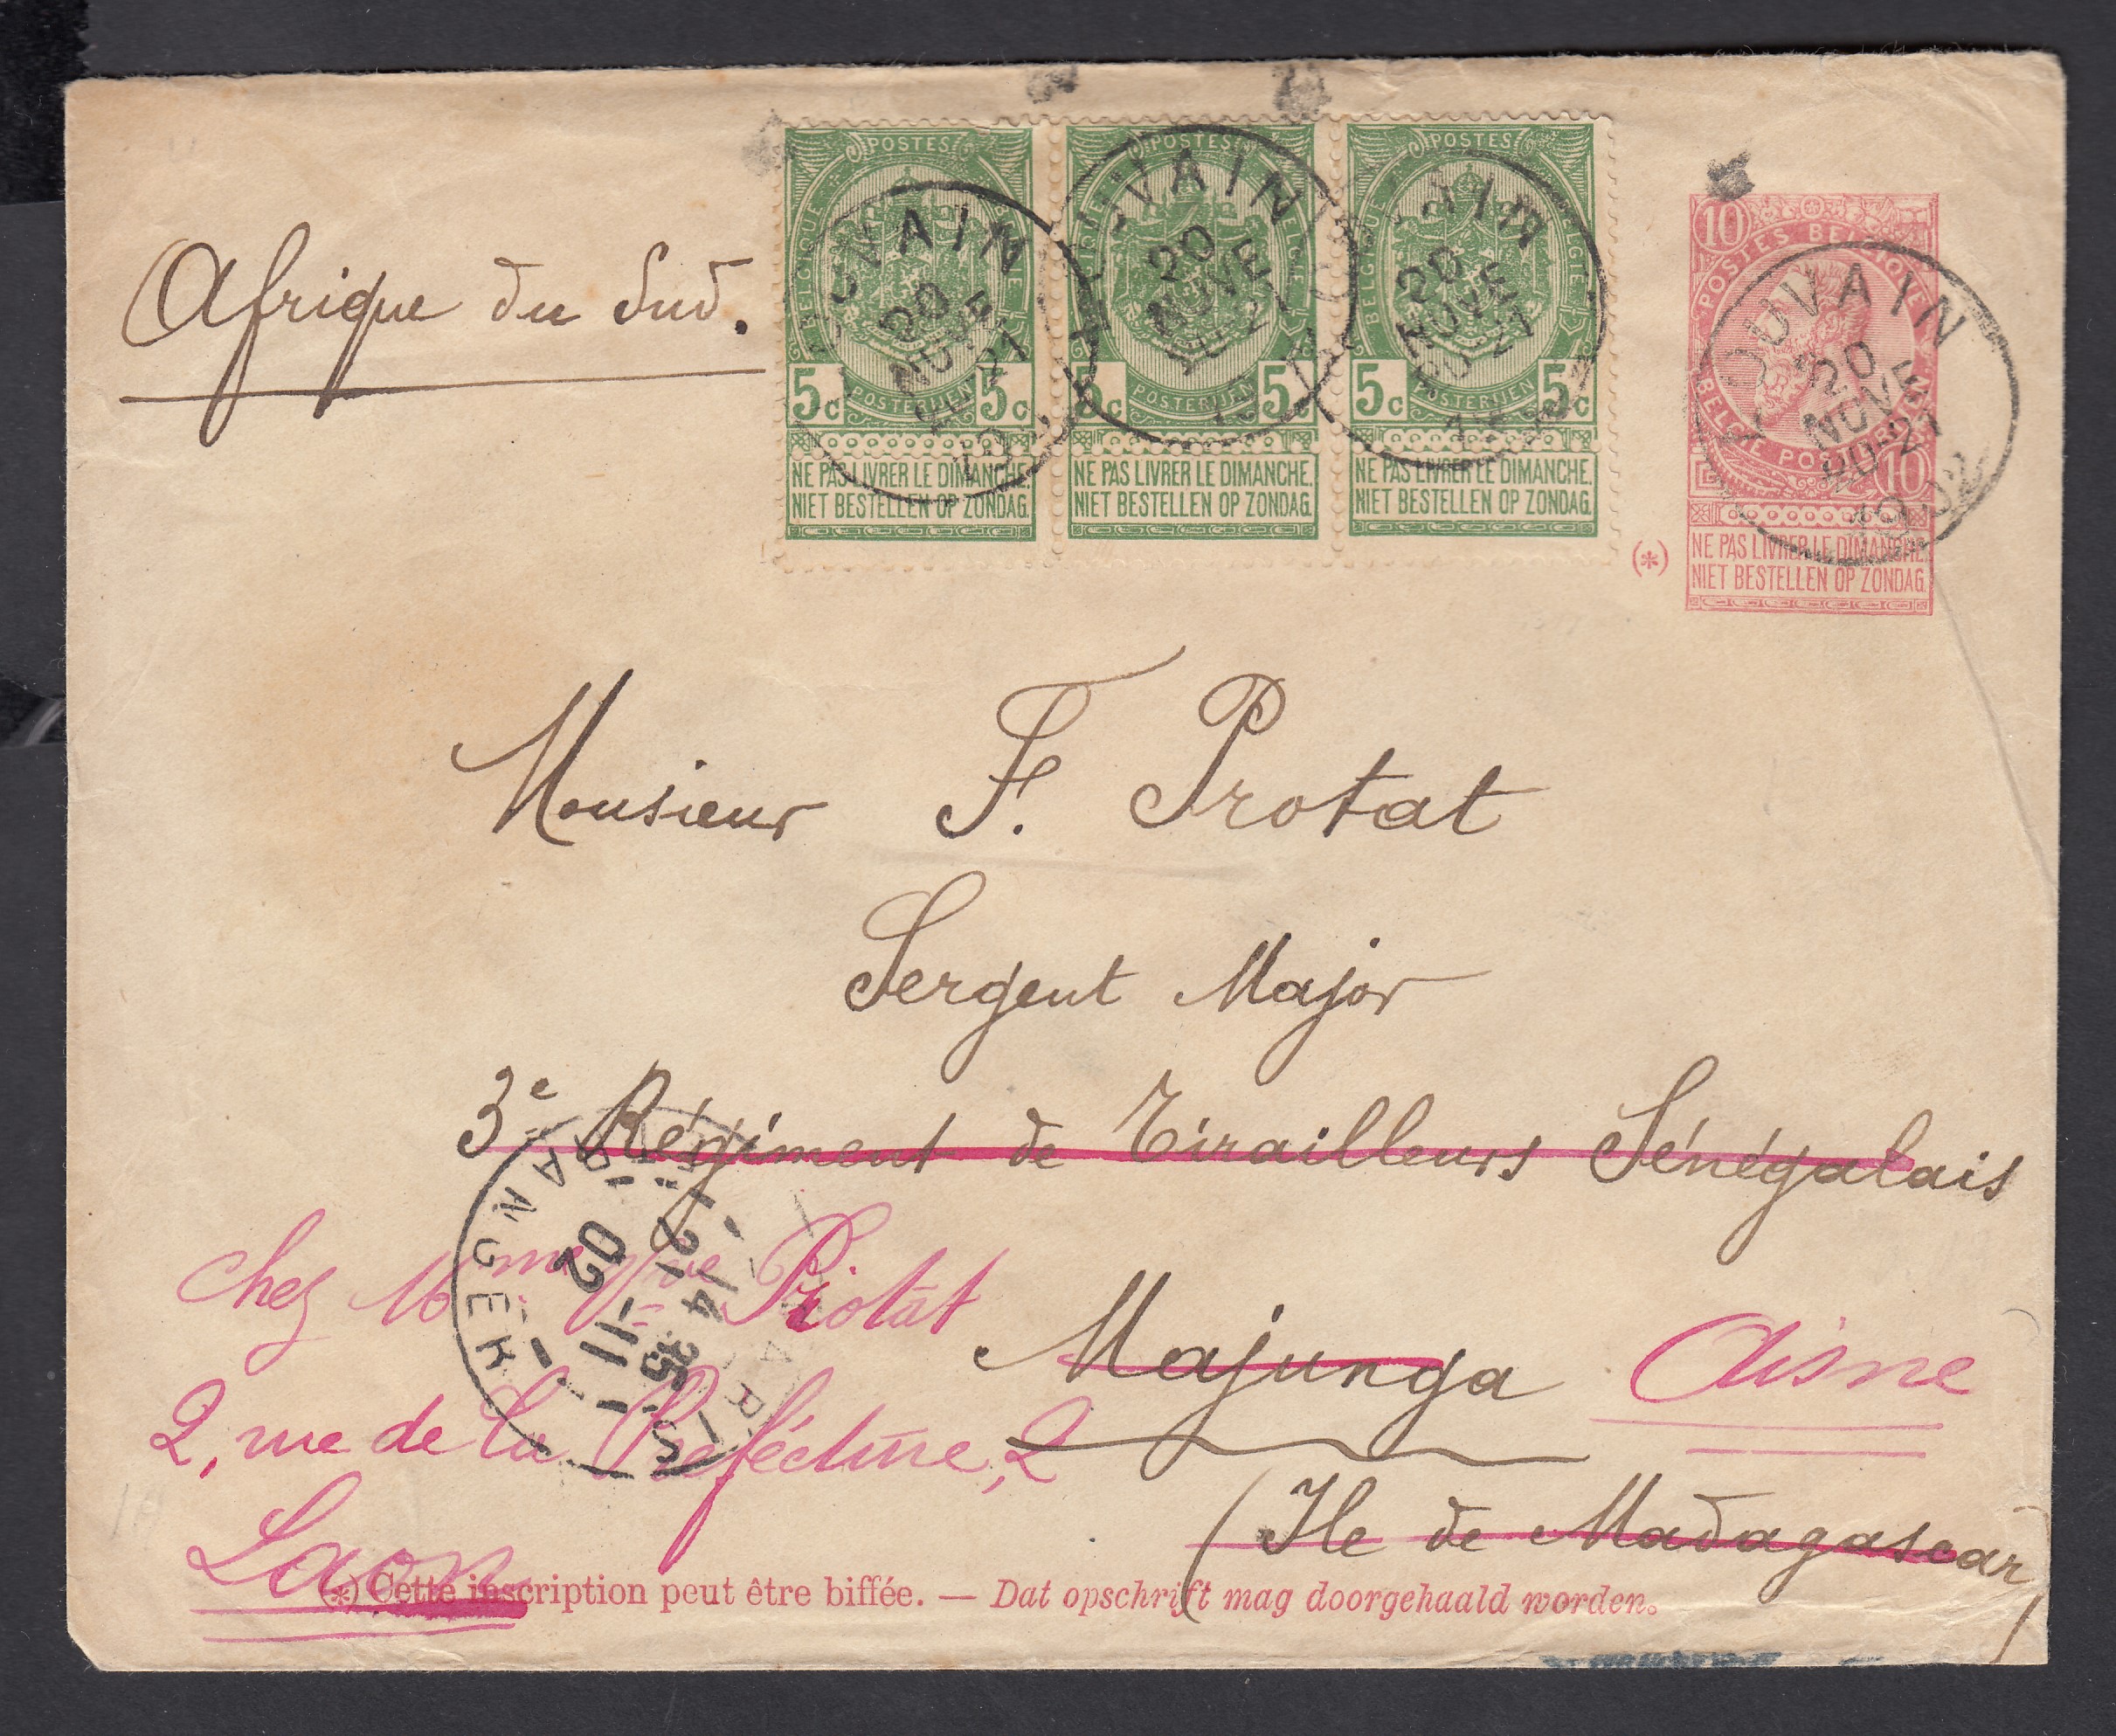 POSTES
BELGIQUE BELGIE
5c 5c
POSTERIJEN
NE PAS LIVRER LE DIMANCHE.
NIET BESTELLEN OP ZONDAG.
POSTES
BELGIQUE BELGIE
5c 5c
POSTERIJEN
NE PAS LIVRER LE DIMANCHE.
NIET BESTELLEN OP ZONDAG.
POSTES
BELGIQUE BELGIE
5c 5c
POSTERIJEN
NE PAS LIVRER LE DIMANCHE.
NIET BESTELLEN OP ZONDAG.
LOUVAIN
20
NOVE
20-21
LOUVAIN
20
NOVE
LOUVAIN
20
NOVE
20-21
10
POSTES BELGIQUE
BELGIE POSTERIJEN
10
LOUVAIN
20
NOVE
20-21
1902
(*)
NE PAS LIVRER LE DIMANCHE.
NIET BESTELLEN OP ZONDAG.
Afrique du Sud.
Monsieur F. Protat
Sergent Major
3e Régiment de Tirailleurs Sénégalais
PARIS
ETRANGER
21 -11
02
14 35
chez Mme Vve Protat
Majunga
Aisne
2, rue de la Préfecture, 2
(Ile de Madagascar)
Laon
(*) Cette inscription peut être biffée. — Dat opschrift mag doorgehaald worden.